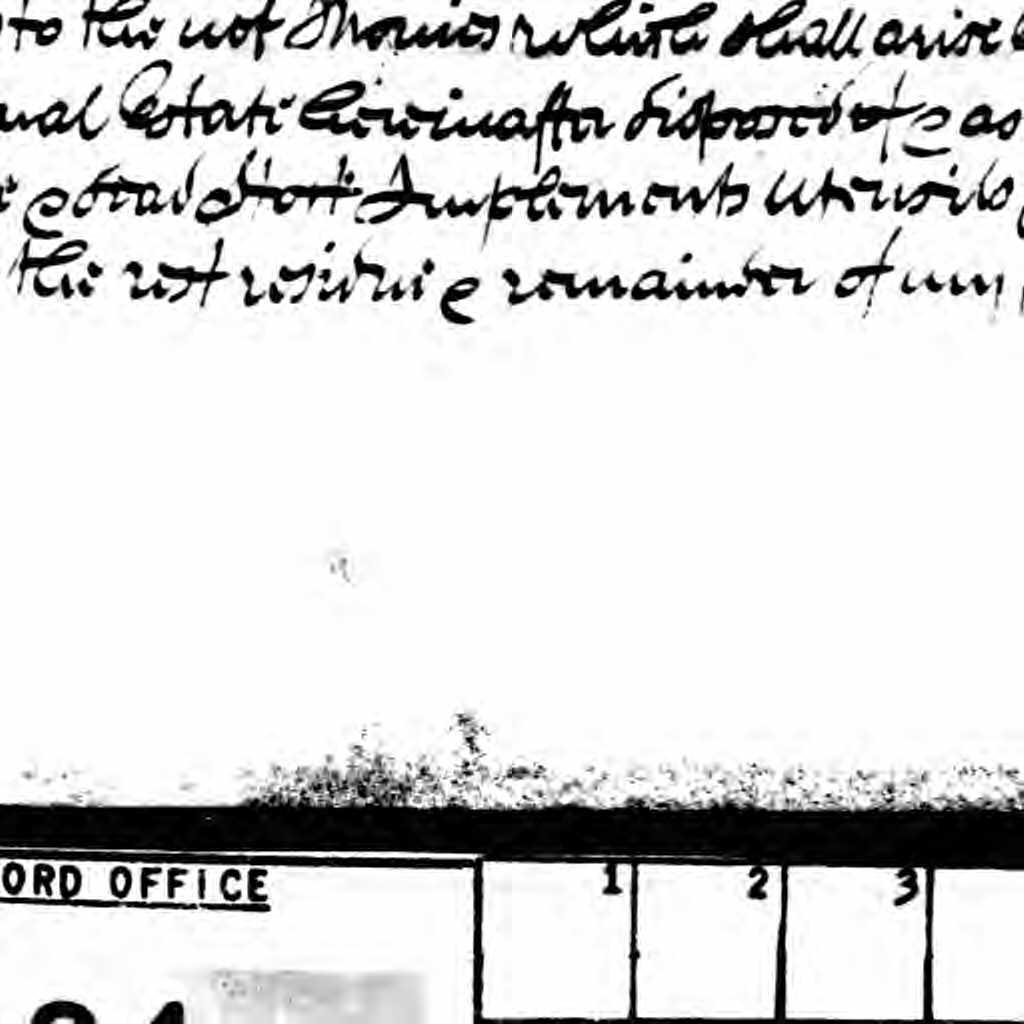 to the not Monies which shall arise
nal Estate hereinafter disposed of & as
& dead Stock Implements Utensils
the rest residue & remainder of my
ORD OFFICE
1 2 3